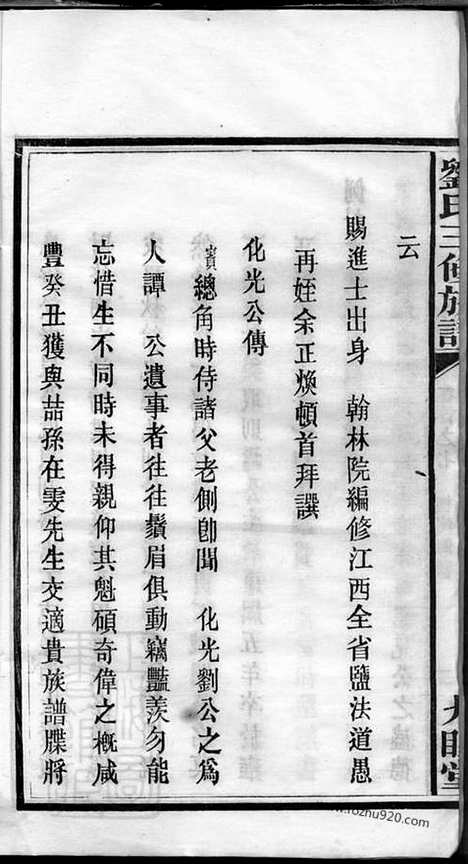 劉氏三修族譜
云
賜進士出身　翰林院編修江西全省鹽法道愚
再姪余正煥頓首拜譔
化光公傳
賓總角時侍諸父老側卽聞　化光劉公之爲
人譚　公遺事者往往鬚眉俱動竊豔羡勿能
忘惜生不同時未得親仰其魁碩奇偉之槪咸
豐癸丑獲與喆孫在雯先生交適貴族譜牒將
www.rozhu920.com